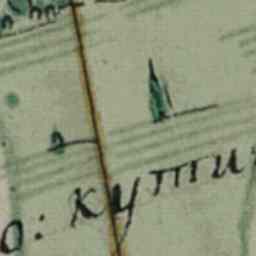 о: кути